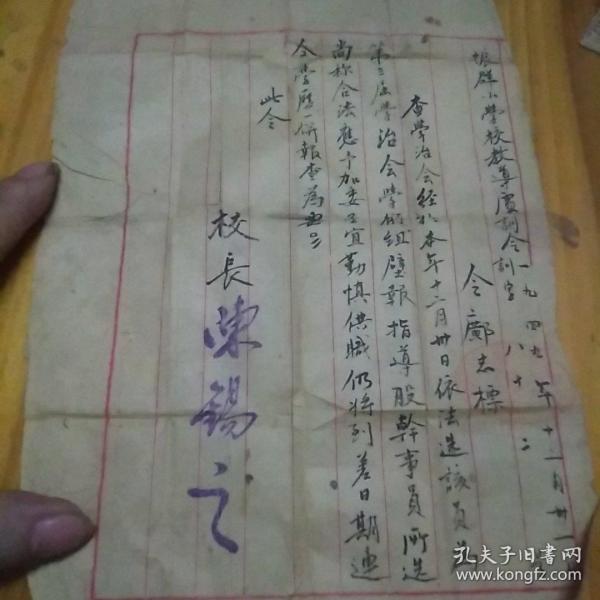 振群小學校教導處訓令 訓字
一九四九年十二月卅一
八十二
令鄺志標
查學治會經於本年十二月卅日依法选該員
第三屆學治會學術組壁報指導股幹事員所选
尚称合法應予加委
宜勤慎供職仍將到差日期速
令學歷一併報查為要
此令
校長
陳錫之
孔夫子旧書网
www.kongfz.com